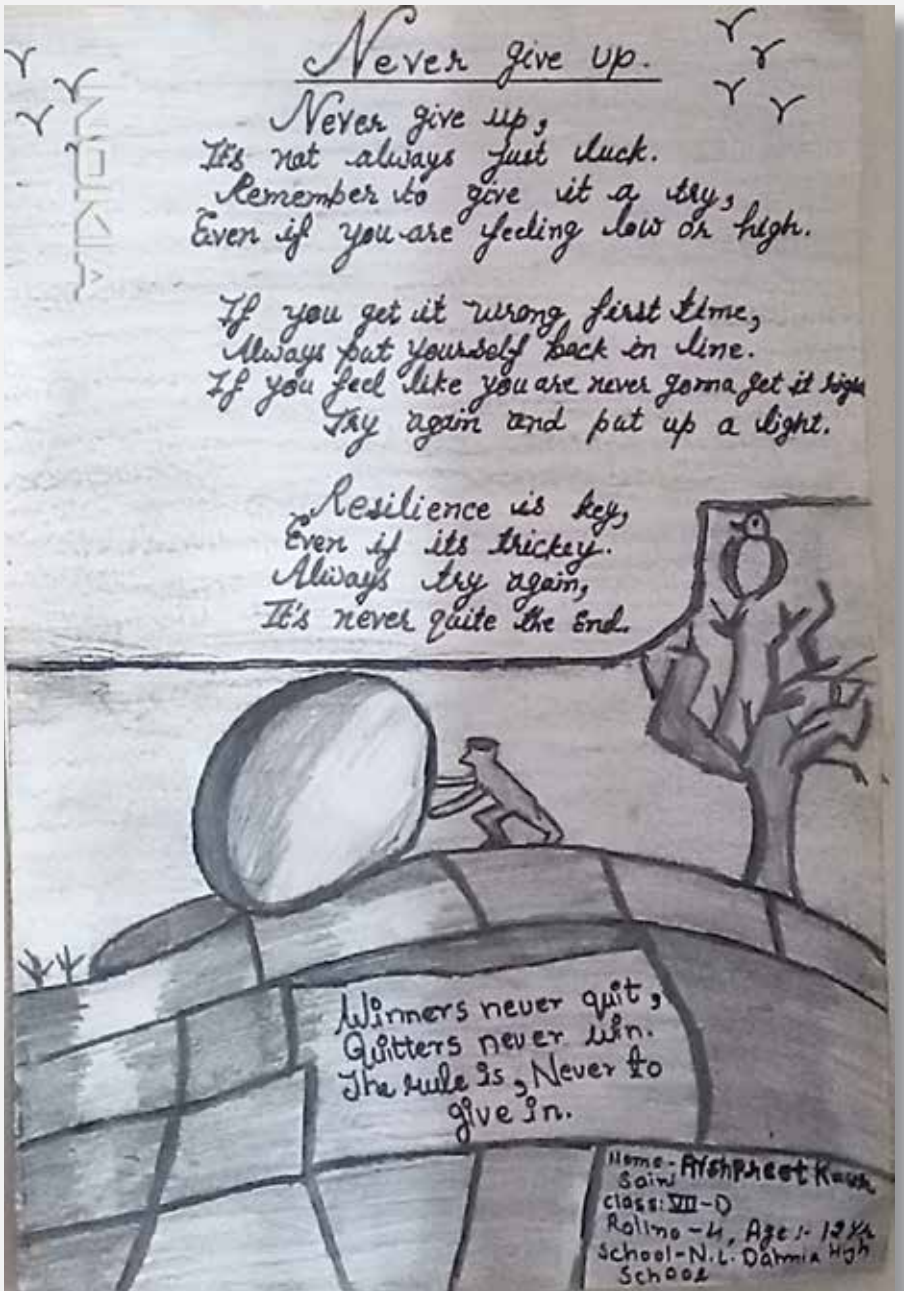 Never give up.
Never give up,
It's not always just luck.
Remember to give it a try,
Even if you are feeling low or high.
If you get it wrong first time,
Always put yourself back in line.
If you feel like you are never gonna get it righ
Try again and put up a light.
Resilience is key,
Even if its trickey.
Always try again,
It's never quite the End.
NOKIA
Winners never quit,
Quitters never win.
The rule is, Never to
give in.
Name - Arshpreet Kaur
Saini
Class: VII-D
Roll no - 4, Age :- 12 Yr
School - N.L. Dalmia High
School